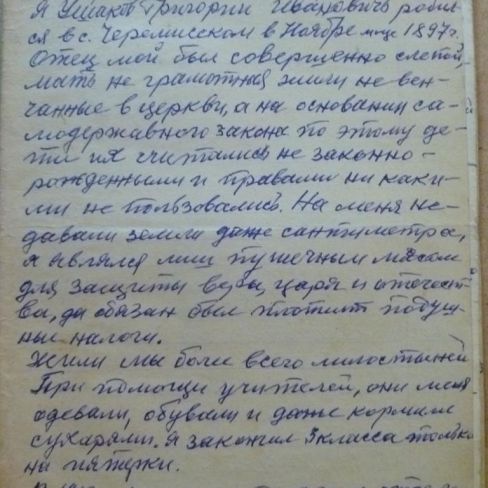 Я Ушаков Григорий Иванович родил-
ся в с. Черемисском в Ноябре м-це 1897г.
Отец мой был совершенно слепой,
мать не грамотная жили не вен-
чанные в церкви, а на основании са-
модержавного закона по этому де-
ти их считались не законно-
рожденными и правами ни каки-
ми не пользовались. На меня не-
давали земли даже сантиметра,
я являлся лиш пушечным мясом
для защиты веры, царя и отечест
ва, да обязан был платит подуш-
ные налоги.
Жили мы боле всего милостыней
При помощи учителей, они меня
одевали, обували и даже кормили
сухарями. Я закончил 3 класса только
на пятерки.